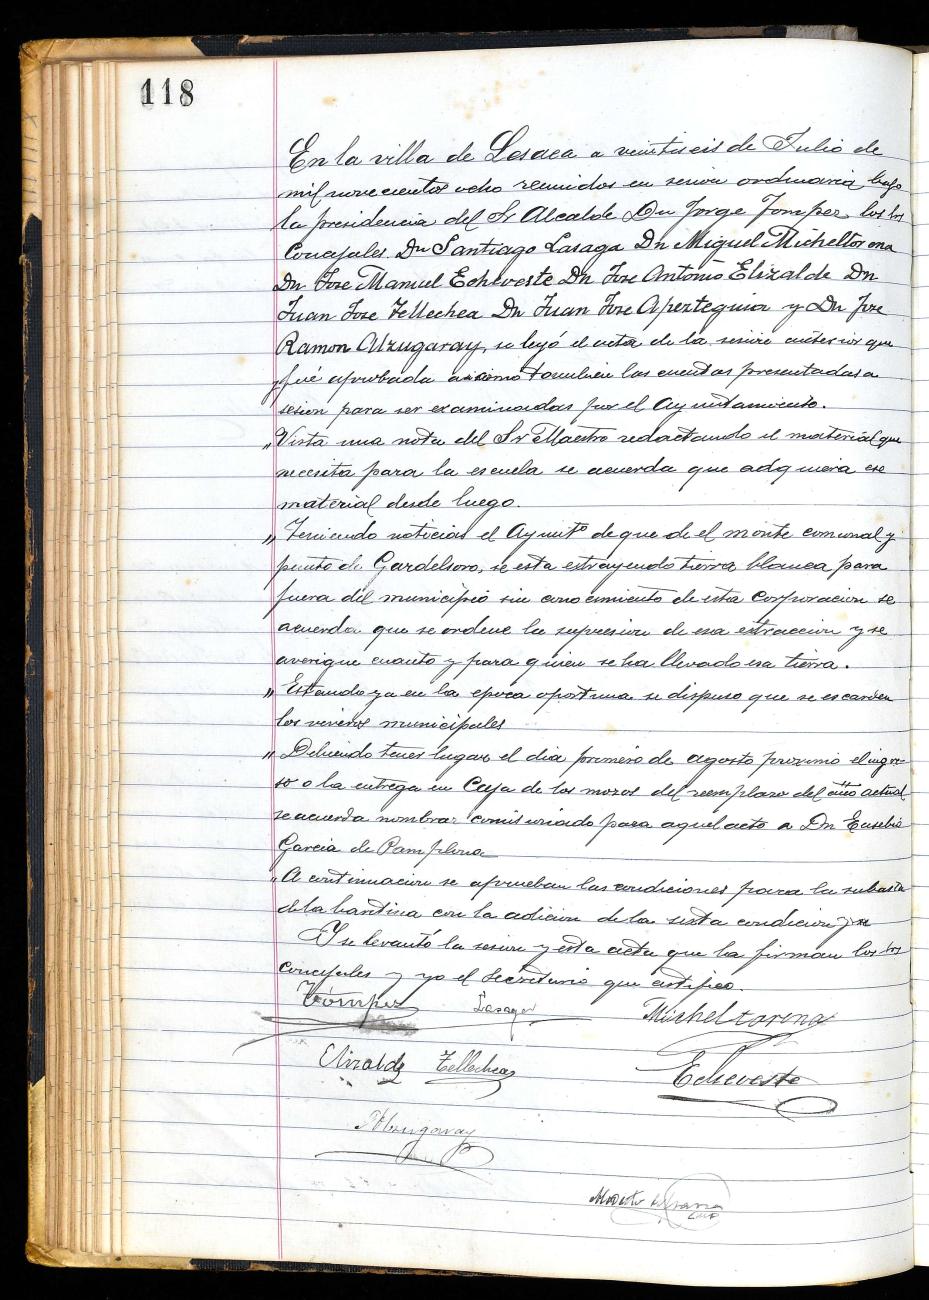 118
En la villa de Lesaca a veintiseis de Julio de
mil novecientos ocho reunidos en sesion ordinaria bajo
la presidencia del Sr Alcalde Dn Jorge Tompez los Sres
Concejales Dn Santiago Lasaga Dn Miguel Micheltorena
Dn Jose Manuel Echeveste Dn Jose Antonio Elizalde Dn
Juan Jose Tellechea Dn Juan Jose Apezteguia y Dn Jose
Ramon Alzugaray, se leyó el acta de la sesion anterior que
fué aprobada asi como tambien las cuentas presentadas a
sesion para ser examinadas por el Ayuntamiento.
„ Vista una nota del Sr Maestro redactando el material que
necesita para la escuela se acuerda que adquiera ese
material desde luego.
„ Teniendo noticias el Ayuntº de que de el monte comunal y
punto de Gardelsoro, se esta extrayendo tierra blanca para
fuera del municipio sin conocimiento de esta corporacion se
acuerda que se ordene la supresion de esa estraccion y se
averigue cuanto y para quien se ha llevado esa tierra.
„ Estando ya en la epoca oportuna se dispuso que se escarden
los viveros municipales
„ Debiendo tener lugar el dia primero de agosto proximo el ingre-
so o la entrega en Caja de los mozos del reemplazo del año actual
se acuerda nombrar comisionado para aquel acto a Dn Eusebio
Garcia de Pamplona
„ A continuacion se aprueban las condiciones para la subasta
de la cantina con la adicion de la sexta condicion
Y se levantó la sesion y esta acta que la firman los Sres
concejales y yo el secretario que certifico.
Tómpez Lasaga Micheltorena
Elizalde Tellechea Echeveste
Alzugaray